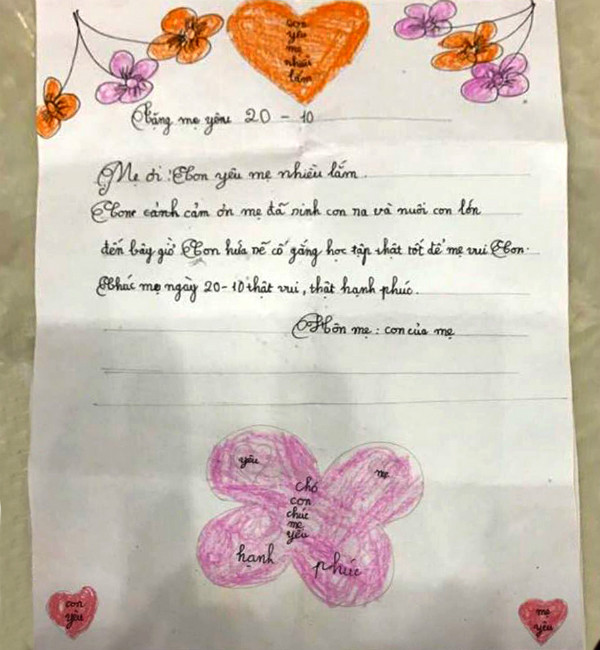 con
yêu
mẹ
nhiều
lắm
Tặng mẹ yêu 20 - 10
Mẹ ơi! Con yêu mẹ nhiều lắm.
Con cảnh cảm ơn mẹ đã sinh con ra và nuôi con lớn
đến bây giờ Con hứa sẽ cố gắng học tập thật tốt để mẹ vui Con.
Chúc mẹ ngày 20-10 thật vui, thật hạnh phúc.
Hôn mẹ: con của mẹ
yêu mẹ
chó
con
chúc
mẹ
yêu
hạnh phúc
con
yêu
mẹ
yêu